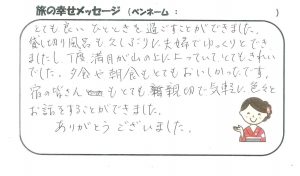 旅の幸せメッセージ (ペンネーム : )
とても良いひとときを過ごすことができました。
貸し切り風呂も久しぶりに夫婦でゆっくりとでき
ましたし、丁度満月が山の上に上っていてとてもきれい
でした。夕食や朝食もとてもおいしかったです。
宿の皆さんもとても親切で気軽に色々と
お話をすることができました。
ありがとうございました。